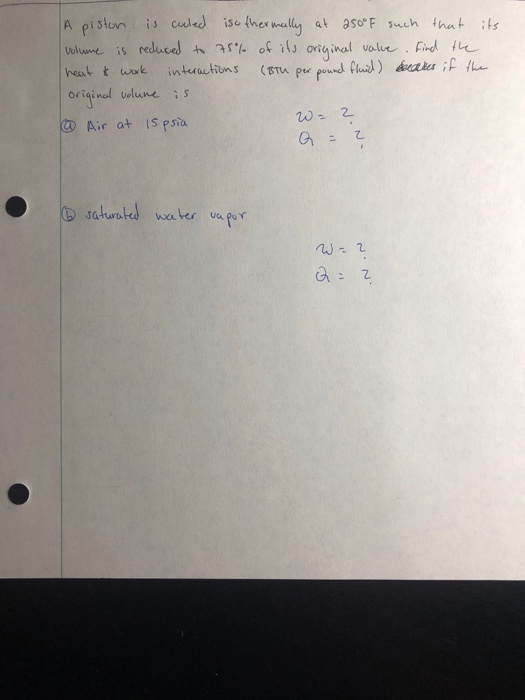 A piston is cooled isothermally at 250°F such that its
volume is reduced to 75% of its original value. Find the
heat & work interactions (BTU per pound fluid) if the
original volume is
ⓐ Air at 15 psia
W = ?
Q = ?
ⓑ saturated water vapor
W = ?
Q = ?